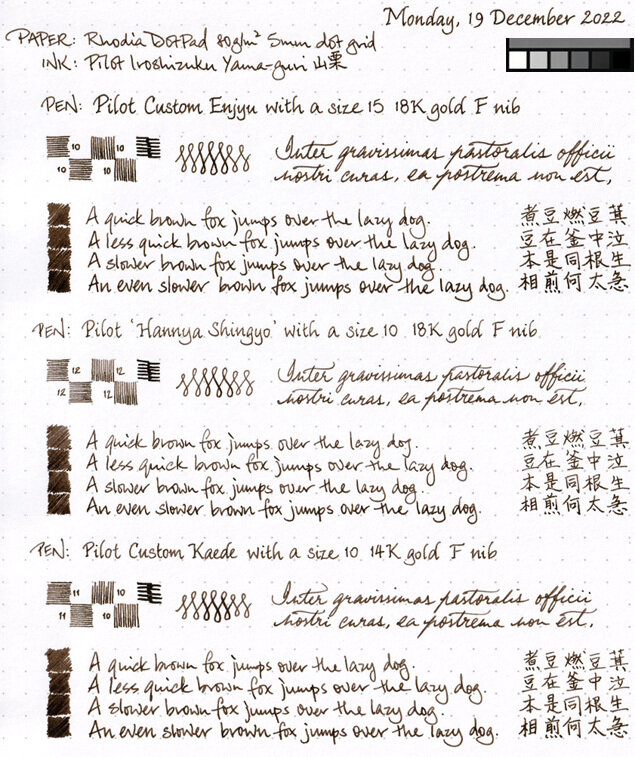 Monday, 19 December 2022
PAPER: Rhodia DotPad 80g/m² 5mm dot grid
INK: Pilot Iroshizuku Yama-guri 山栗
PEN: Pilot Custom Enjyu with a size 15 18K gold F nib
10 10
10 10
Inter gravissimas pastoralis officii
nostri curas, ea postrema non est,
A quick brown fox jumps over the lazy dog.
A less quick brown fox jumps over the lazy dog.
A slower brown fox jumps over the lazy dog.
An even slower brown fox jumps over the lazy dog.
煮豆燃豆萁
豆在釜中泣
本是同根生
相煎何太急
PEN: Pilot 'Hannya Shingyo' with a size 10 18K gold F nib
12 12
12 12
Inter gravissimas pastoralis officii
nostri curas, ea postrema non est,
A quick brown fox jumps over the lazy dog.
A less quick brown fox jumps over the lazy dog.
A slower brown fox jumps over the lazy dog.
An even slower brown fox jumps over the lazy dog.
煮豆燃豆萁
豆在釜中泣
本是同根生
相煎何太急
PEN: Pilot Custom Kaede with a size 10 14K gold F nib
11 10
11 10
Inter gravissimas pastoralis officii
nostri curas, ea postrema non est,
A quick brown fox jumps over the lazy dog.
A less quick brown fox jumps over the lazy dog.
A slower brown fox jumps over the lazy dog.
An even slower brown fox jumps over the lazy dog.
煮豆燃豆萁
豆在釜中泣
本是同根生
相煎何太急